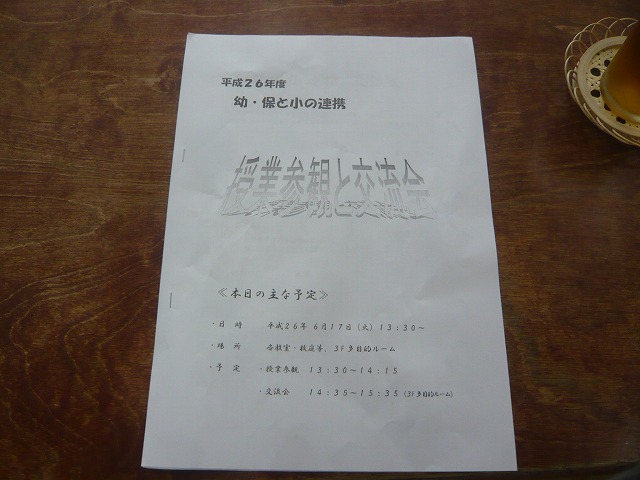 平成２６年度
幼・保と小の連携
授業参観と交流会
≪本日の主な予定≫
・日　時　　平成２６年 ６月１７日（火）１３：３０～
・場　所　　各教室・校庭等、３Ｆ多目的ルーム
・予　定　・授業参観　１３：３０～１４：１５
・交流会　１４：３５～１５：３５（３Ｆ多目的ルーム）